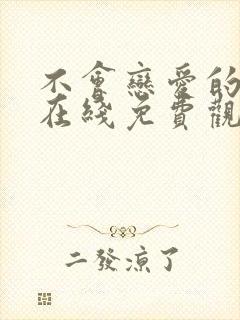 不會戀愛的
在綫免費觀
二發涼了